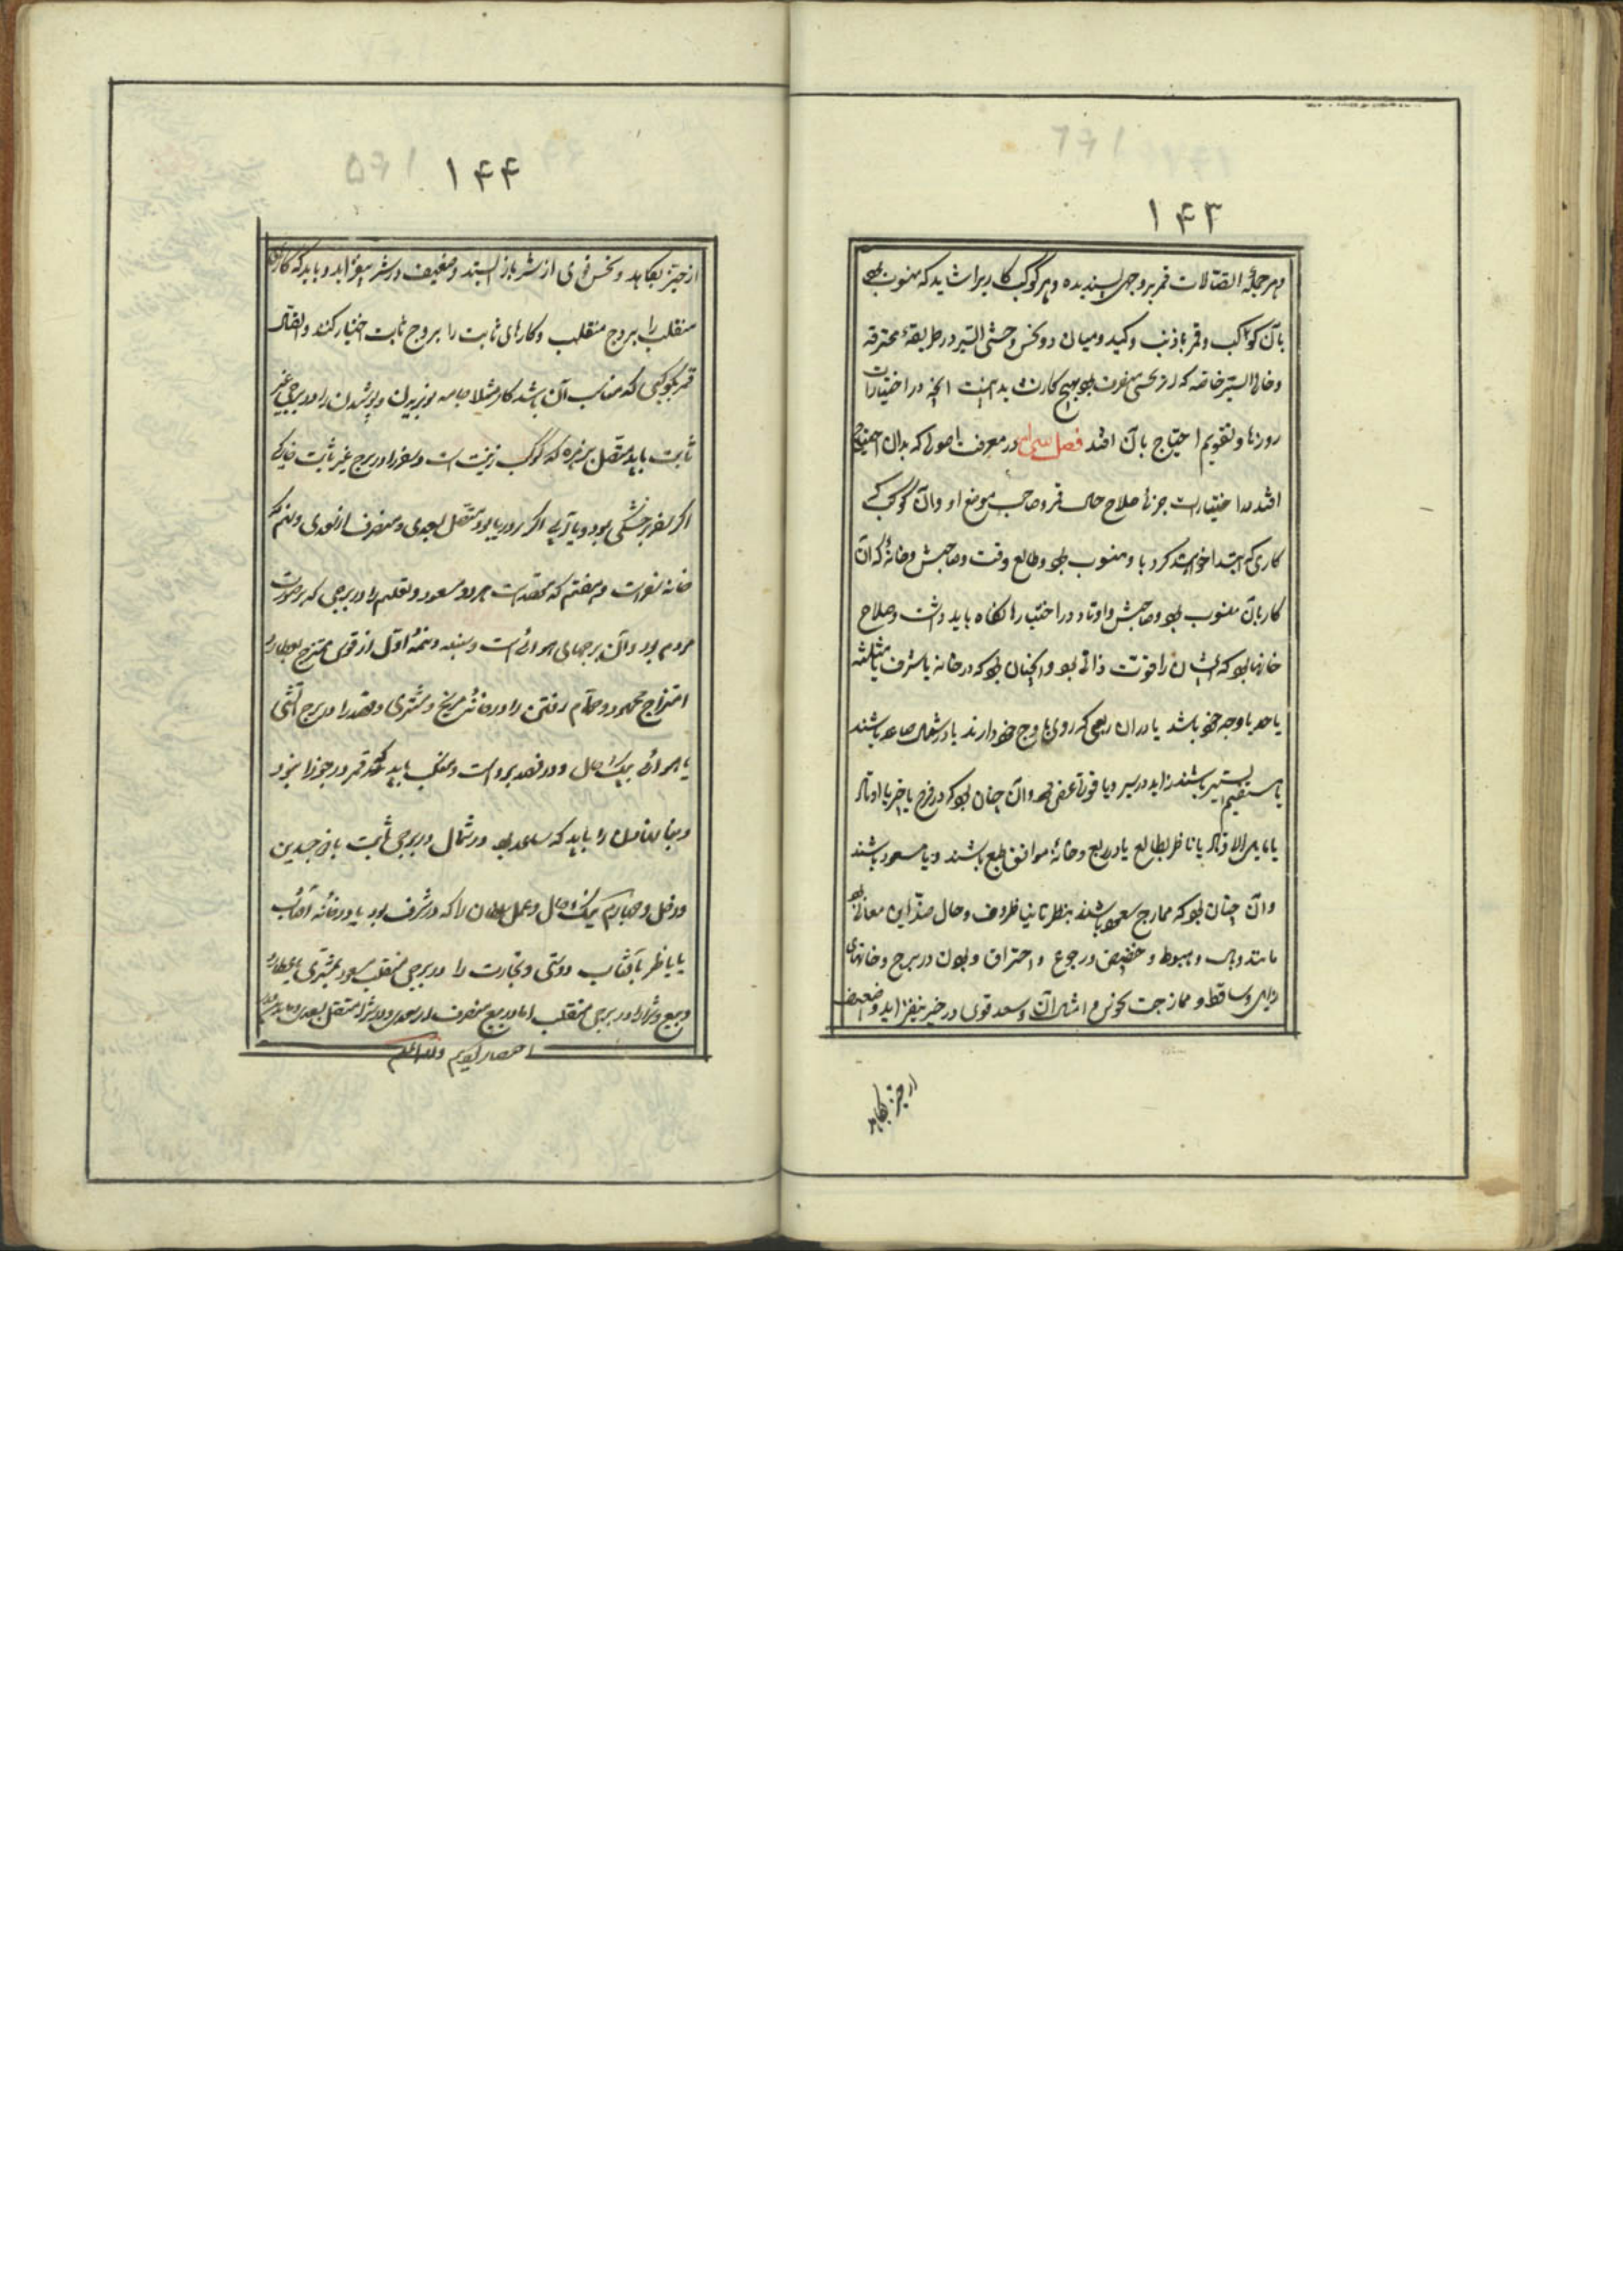 ۱۴۳
و هر جمله اتصالات قمر بر وجهی پسندیده و هر کوکب کاریرا شاید که منسوب بود
بآن کواکب و قمر با ذنب و کید و میان دو نحس و وحشی السیر در طریقهٔ محترقه
و خالی السیر خاصه که از نحسی منصرف بود هیچ کار نشاید اینست آنچه در اختیارات
روزها و تقویم احتیاج بآن افتد فصل سی ام در معرفت اصولی که بدان احتیاج
افتد در اختیارات جزئی صلاح حال قمر و صاحب موضع او و آن کوکب که
کاری که ابتدا خواهند کرد باو منسوب بود و طالع وقت و صاحبش و خانهٔ که آن
کار بآن منسوب بود و صاحبش و اوتاد در اختیارها نگاه باید داشت و صلاح
خانها بود که ایشان را قوت ذاتی بود و آنچنان بود که در خانه یا شرف یا مثلثه
یا حد یا وجه خود باشد یا در آن ربعی که روی باوج خود دارند یا در شمال صاعد باشند
یا مستقیم السیر باشند زاید در سیر و یا قوت عرضی بود و آن چنان بود که در فرح یا خیر یا اوتاد
یا مایل الاوتاد یا ناظر بطالع یا در ربع و خانهٔ موافق طبع باشند و یا مسعود باشند
و آن چنان بود که ممازج سعود باشند بنظر تا نیا ظروف و حال ضد این معانی بود
مانند وبال و هبوط و حضیض و رجوع و احتراق و بودن در برج و خانهای
زایل و ساقط و ممازجت نحوس و امثال آن و سعد قوی در خیر بیفزاید و ضعیف
از خیر بکاهد
۱۴۴
از خیر بکاهد و نحس قوی از شر باز ایستد و ضعیف در شر بیفزاید و باید که کارهای
منقلب را ببروج منقلب و کارهای ثابت را ببروج ثابت اختیار کنند و اتصال
قمر بکوکبی که مناسب آن باشد کار مثلا جامه نو بریدن و پوشیدن را در برجی غیر
ثابت باید متصل بزهره که کوکب زینت است و سفر را در برج غیر ثابت خاکی
اگر سفر بخشکی بود و یا آبی اگر در دریا بود و متصل بسعدی و منصرف از سعدی و نهم که
خانه سفر است و هفتم که مقصد است هر دو مسعود و تعلیم را در برجی که بر صورت
مردم بود و آن برجهای هوائی است و سنبله و نیمهٔ اول از قوس ممتزج بعطارد
امتزاج محمود و حمام رفتن را در خانهٔ مریخ و مشتری و فصد را در برج آتشی
یا هوائی نیک حال و در فصد بروات و منقلب باید که قمر در جوزا نبود
و بنا نهادن را باید که مسعود بود در شمال و در برجی ثابت یا ذو جسدین
و زحل و چهارم نیک حال و عمل سلطان را که در شرف بود یا در خانه آفتاب
یا ناظر بآفتاب دوستی و تجارت را در برجی منقلب مسعود بمشتری یا عطارد
و بیع و شرا را در برجی منقلب اما در بیع منصرف از سعدی و در شرا متصل بسعدی
اختصار کردیم والله اعلم